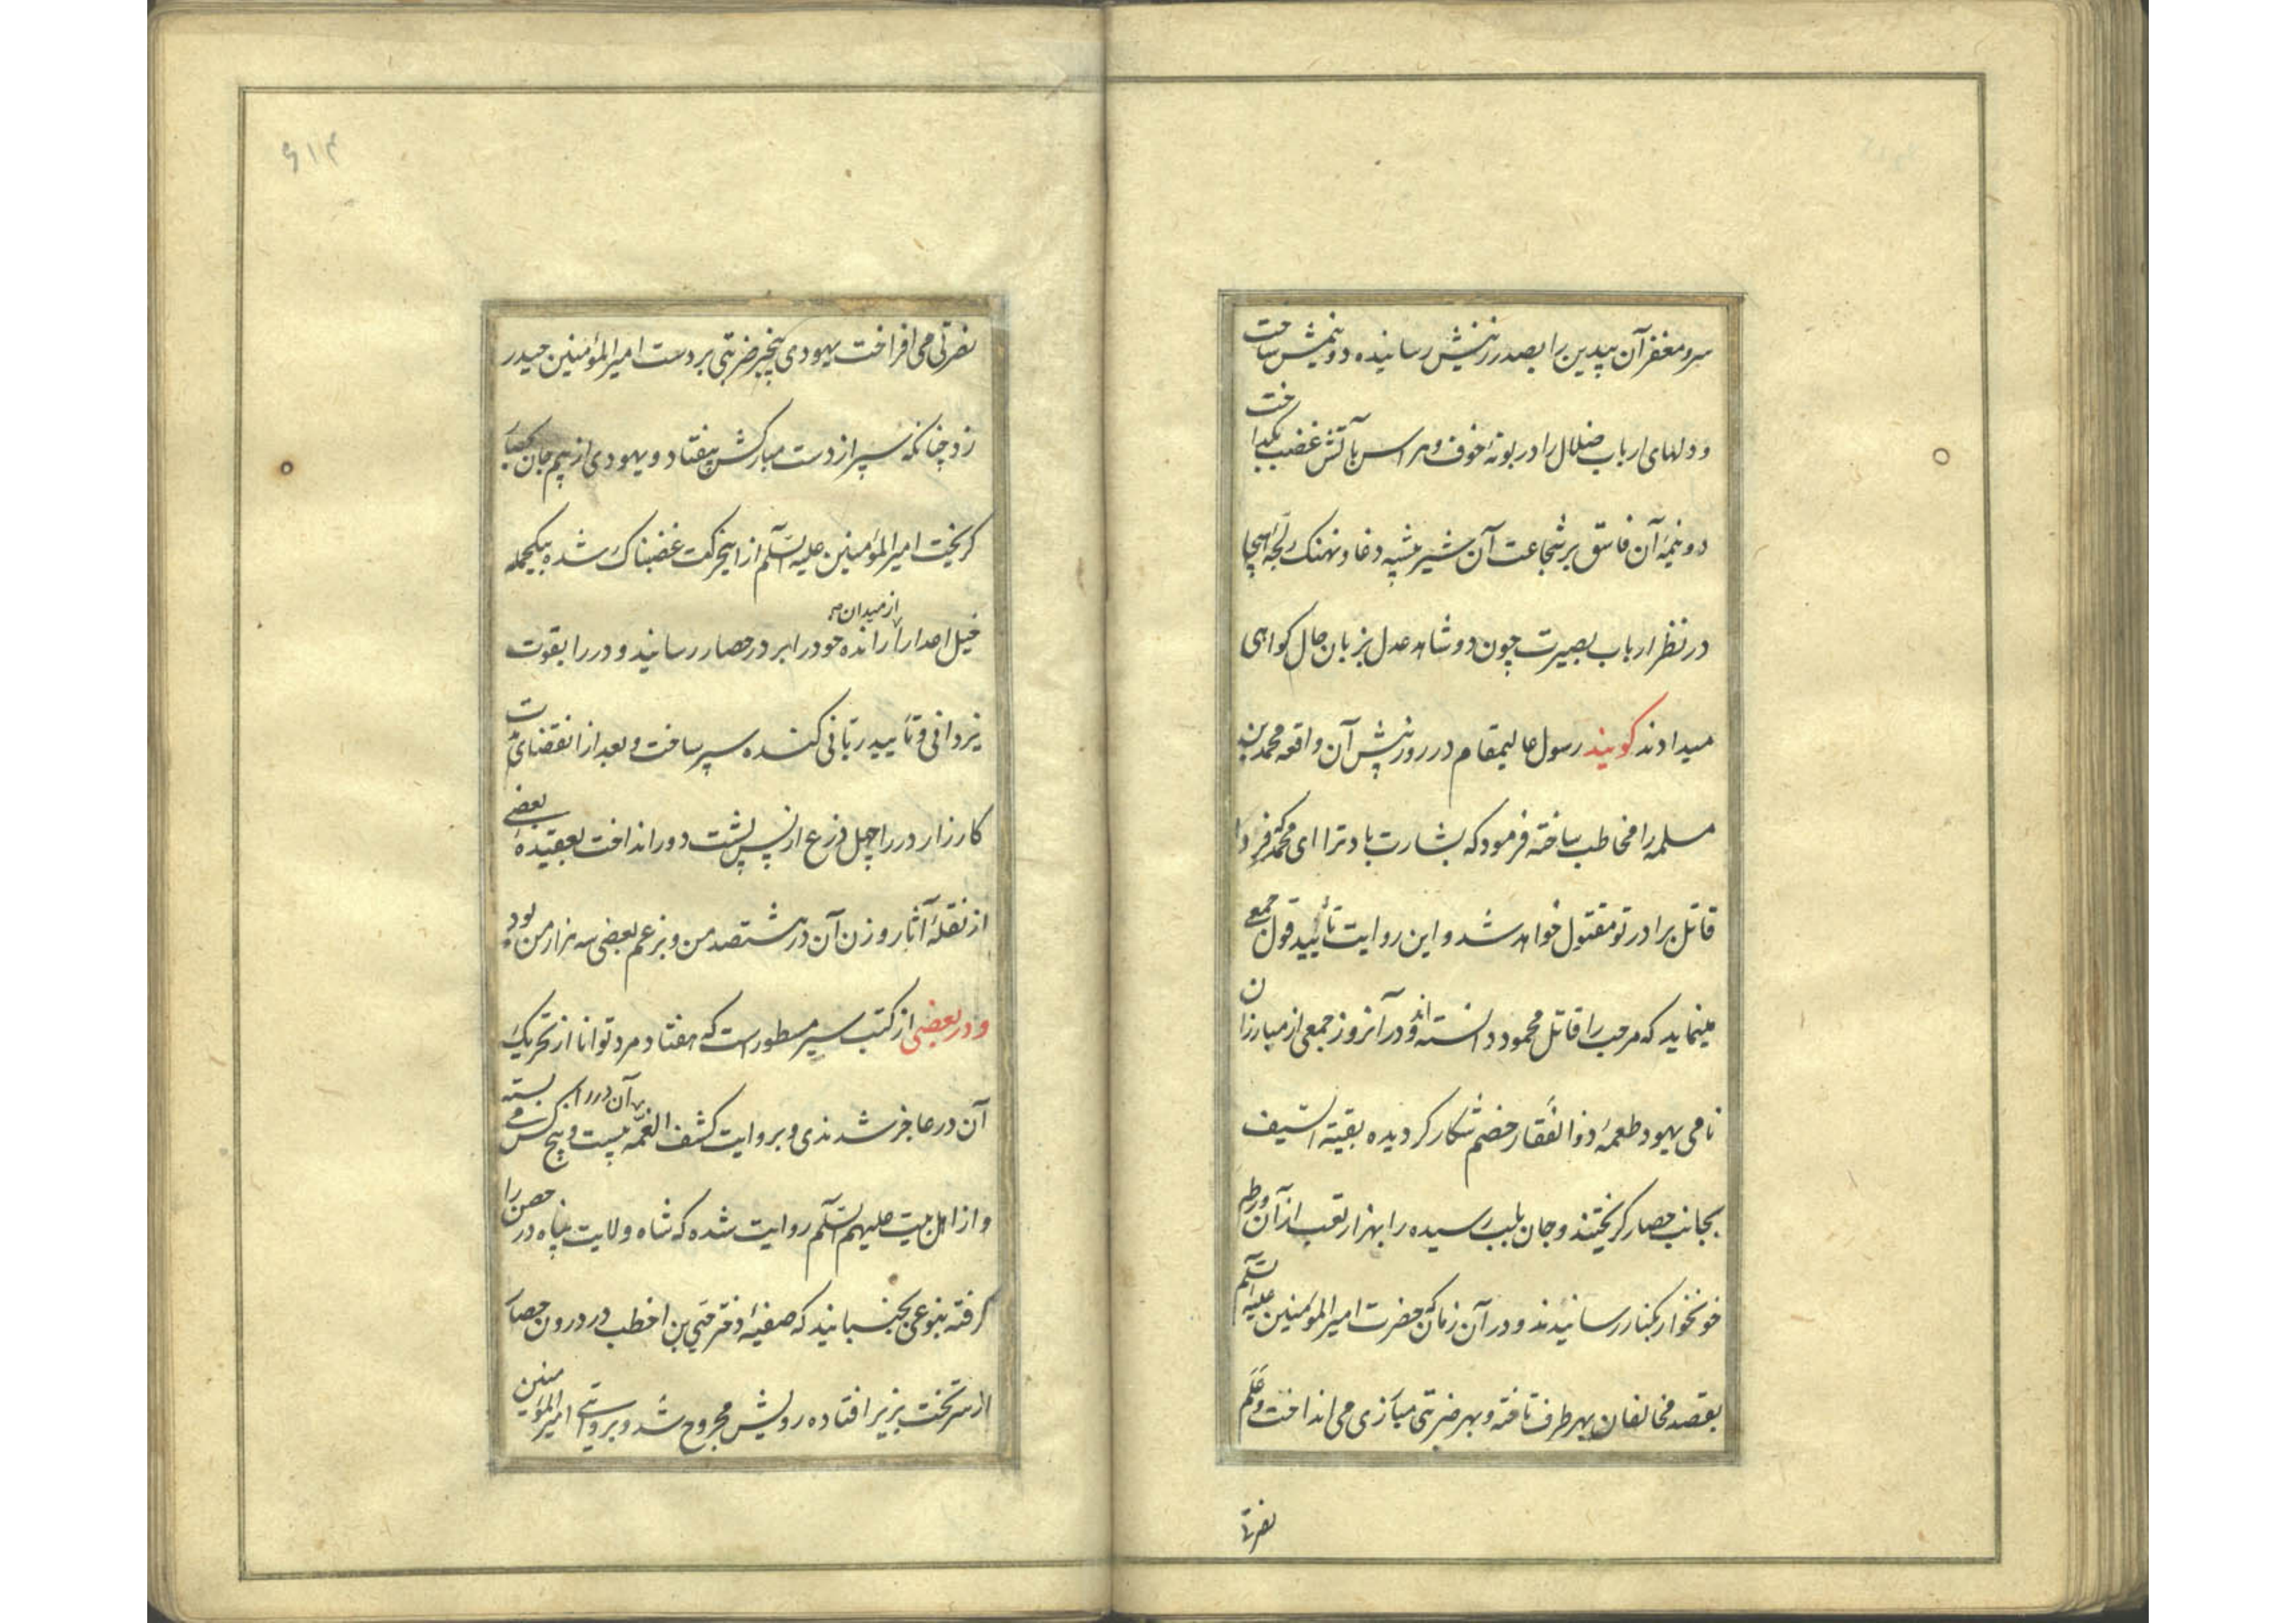 سر و مغفر آن بیدین را بصدر زینش رسانیده دو نیمش ساخت
و دلهای ارباب ضلال را در بوتهٔ خوف و هراس بآتش غضب بگداخت
دو نیمهٔ آن فاسق بر شجاعت آن شیر بیشهٔ دغا و نهنک لجهٔ هیجا
در نظر ارباب بصیرت چون دو شاهد عدل بزبان حال کواهی
میدادند کویند رسول عالیمقام در روز پیش آن واقعه محمد بن
مسلمه را مخاطب ساخته فرمود که بشارت باد ترا ای محمد که فردا
قاتل برادر تو مقتول خواهد شد و این روایت تائید قول جمعی
مینماید که مرحب را قاتل محمود دانسته‌اند و در آنروز جمعی از مبارزان
نامی یهود طعمهٔ ذوالفقار خصم شکار کردیده بقیة السیف
بجانب حصار کریختند و جان بلب رسیده را بهزار تعب از آن ورطه
خونخوار بکنار رسانیدند و در آن زمان که حضرت امیر المؤمنین علیه السلم
بقصد مخالفان بهر طرف تاخته و بهر ضربتی مبارزی می انداخت و علم
نصرتی
۴۱۶
نصرتی می افراخت یهودی بیخبر ضربتی بر دست امیر المؤمنین حیدر
زد چنانکه سپر از دست مبارکش بیفتاد و یهودی از بیم جان بحصار
کریخت امیر المؤمنین علیه السلم از اینحرکت غضبناک شده بیکحمله
خیل اعدا را از میدان رانده خود را بر در حصار رسانید و در را بقوت
یزدانی و تایید ربانی کنده سپر ساخت و بعد از انقضای مدت
کارزار در را چهل ذرع از پس پشت دور انداخت بعقیدهٔ بعضی
از نقلهٔ آثار وزن آن در هشتصد من و بزعم بعضی سه هزار من بود
و در بعضی از کتب سیر مسطور است که هفتاد مرد توانا از تحریک
آن در عاجز شدندی و بروایت کشف الغمه بیست و پنج کس آن در را می بسته
و از اهل بیت علیهم السلم روایت شده که شاه ولایت پناه در حصن را
کرفته بنوعی بجنبانید که صفیهٔ دختر حیی بن اخطب در درون حصار
از سر تخت بزیر افتاده رویش مجروح شد و بروایتی امیر المؤمنین